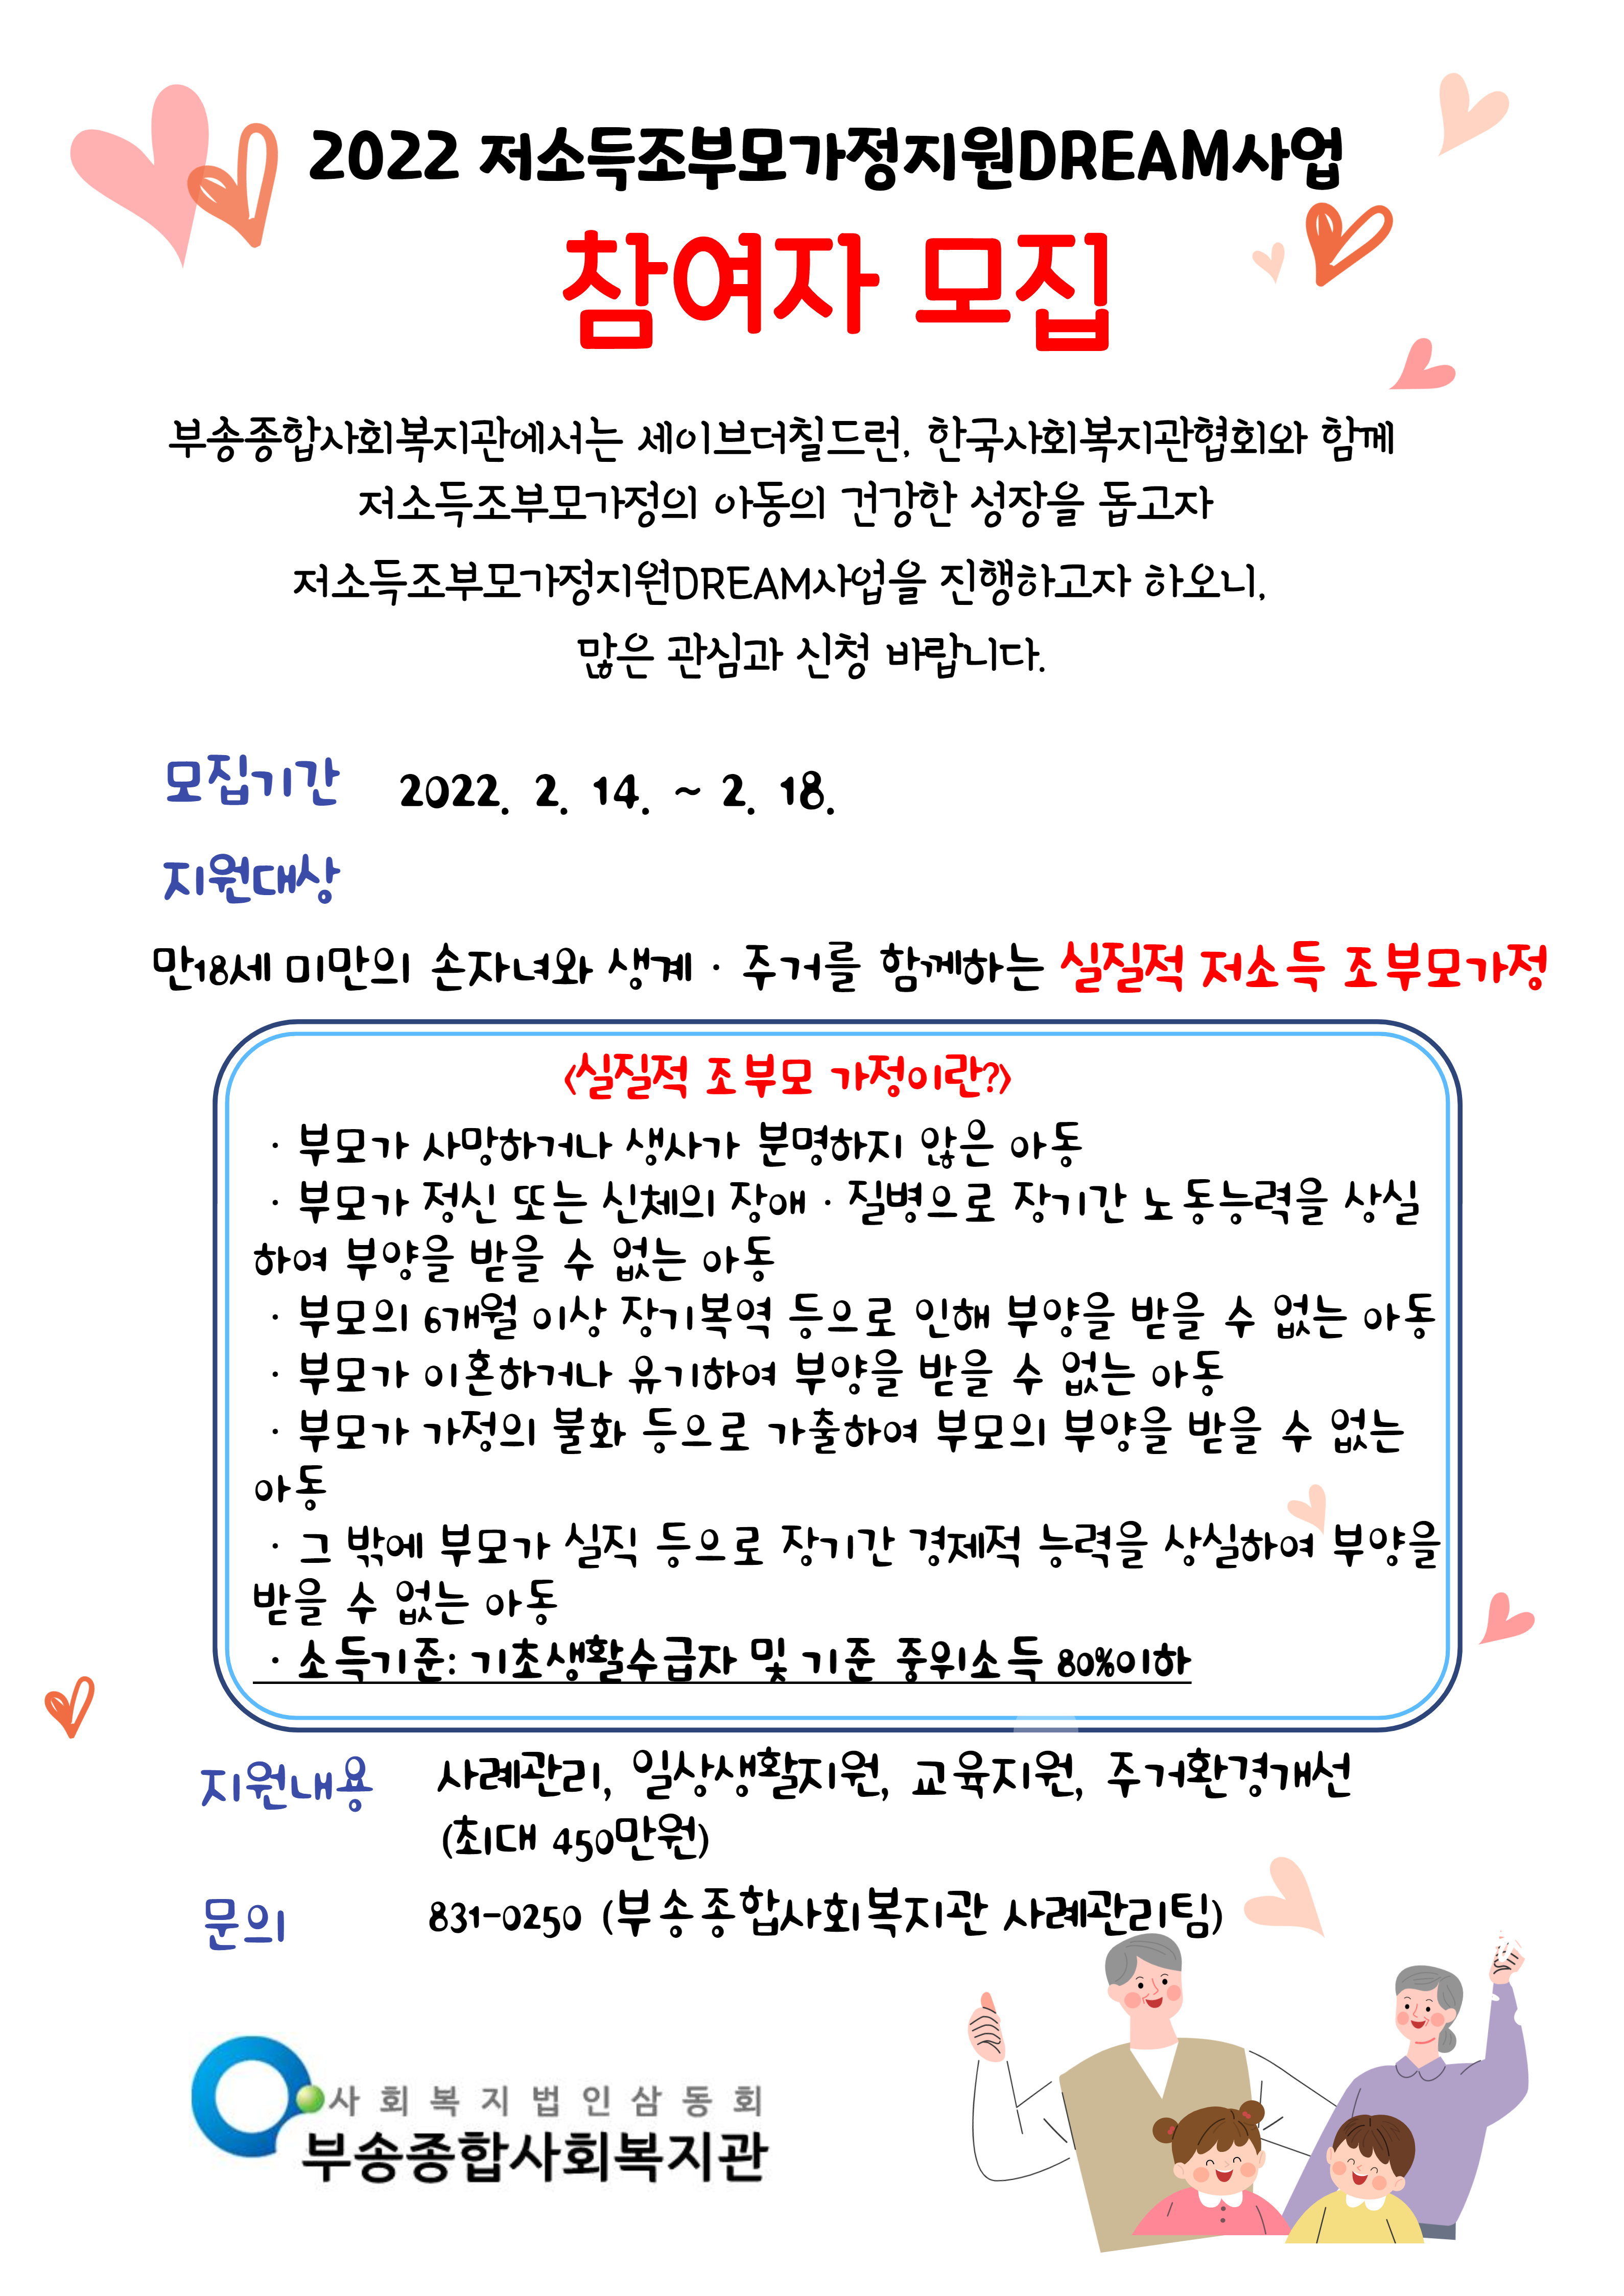 2022 저소득조부모가정지원DREAM사업
참여자 모집
부송종합사회복지관에서는 세이브더칠드런, 한국사회복지관협회와 함께
저소득조부모가정의 아동의 건강한 성장을 돕고자
저소득조부모가정지원DREAM사업을 진행하고자 하오니,
많은 관심과 신청 바랍니다.
모집기간 2022. 2. 14. ~ 2. 18.
지원대상
만18세 미만의 손자녀와 생계 · 주거를 함께하는 실질적 저소득 조부모가정
<실질적 조부모 가정이란?>
· 부모가 사망하거나 생사가 분명하지 않은 아동
· 부모가 정신 또는 신체의 장애 · 질병으로 장기간 노동능력을 상실
하여 부양을 받을 수 없는 아동
· 부모의 6개월 이상 장기복역 등으로 인해 부양을 받을 수 없는 아동
· 부모가 이혼하거나 유기하여 부양을 받을 수 없는 아동
· 부모가 가정의 불화 등으로 가출하여 부모의 부양을 받을 수 없는
아동
· 그 밖에 부모가 실직 등으로 장기간 경제적 능력을 상실하여 부양을
받을 수 없는 아동
· 소득기준: 기초생활수급자 및 기준 중위소득 80%이하
지원내용 사례관리, 일상생활지원, 교육지원, 주거환경개선
(최대 450만원)
문의 831-0250 (부송종합사회복지관 사례관리팀)
사회복지법인삼동회
부송종합사회복지관